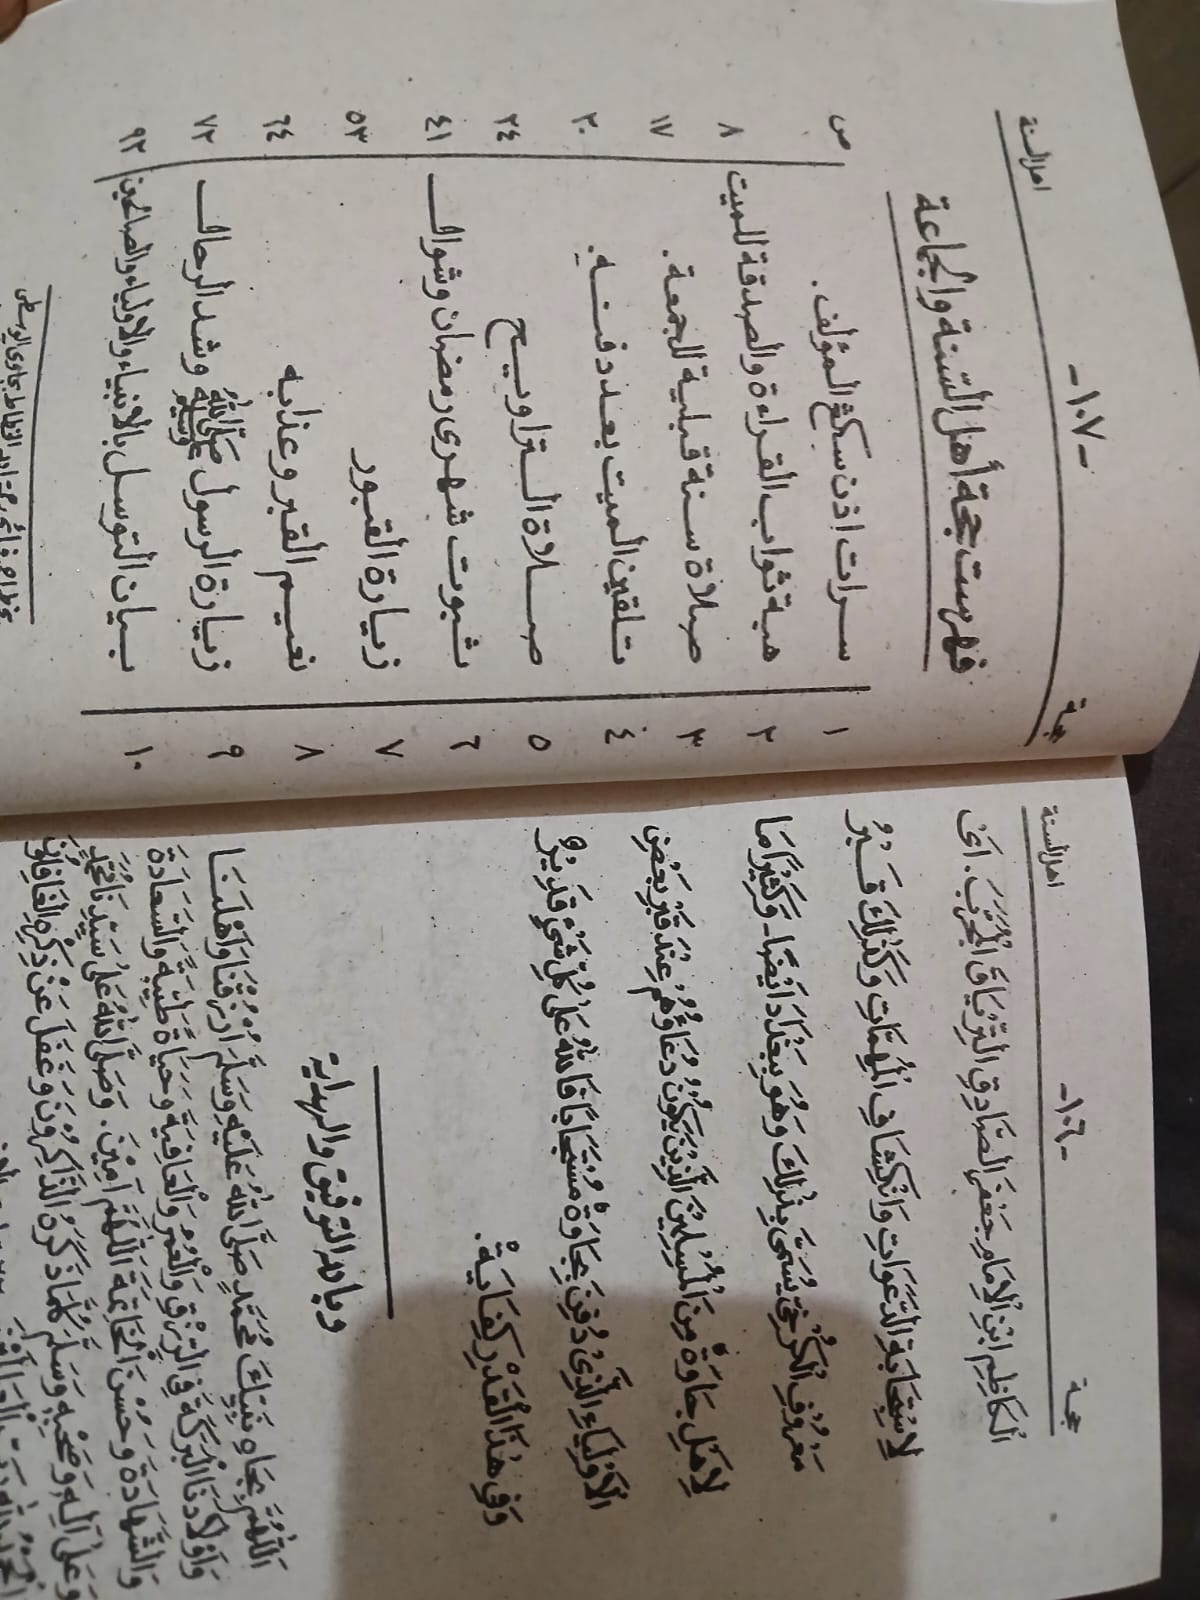 اهل السنة -١٠٦- حجة
الْكَاظِمِ ابْنِ الْاِمَامِ جَعْفَرَ الصَّادِقِ التِّرْيَاقَ الْمُجَرَّبَ. اَىْ
لِاسْتِجَابَةِ الدَّعَوَاتِ وَانْكِشَافِ الْمُهِمَّاتِ وَكَذٰلِكَ قَبْرُ
مَعْرُوْفِ الْكُرْخِىْ يُسَمَّى بِذٰلِكَ وَهُوَ بِبَغْدَادَ اَيْضًا - وَكَثِيْرًا مَا
لِاَهْلِ جَاوَةَ مِنَ الْمُسْلِمِيْنَ الَّذِيْنَ يَكُوْنُ دُعَاؤُهُمْ عِنْدَ قَبْرِ بَعْضِ
الْاَوْلِيَاءِ الَّذِىْ دُفِنَ بِجَاوَةَ مُسْتَجَابًا فَاللّٰهُ عَلَى كُلِّ شَىْءٍ قَدِيْرٌ
وَفِى هٰذَا الْقَدْرِ كِفَايَةٌ.
وبالله التوفيق والهداية
اَللّٰهُمَّ بِجَاهِ نَبِيِّكَ مُحَمَّدٍ صَلَّى اللّٰهُ عَلَيْهِ وَسَلَّمَ ارْزُقْنَا وَاَهْلَنَا
وَاَوْلَادَنَا الْبَرَكَةَ فِى الرِّزْقِ وَالْعُمُرِ وَالْعَافِيَةَ وَحَيَاةً طَيِّبَةً وَالسَّعَادَةَ
وَالشَّهَادَةَ وَحُسْنَ الْخَاتِمَةِ اَللّٰهُمَّ اٰمِيْنَ. وَصَلَّى اللّٰهُ عَلَى سَيِّدِنَا مُحَمَّدٍ
وَعَلَى اٰلِهِ وَصَحْبِهِ وَسَلَّمَ كُلَّمَا ذَكَرَهُ الذَّاكِرُوْنَ وَغَفَلَ عَنْ ذِكْرِهِ الْغَافِلُوْنَ
اهل السنة -١٠٧- حجة
فهرست حجة أهل السنة والجماعة
ص
١ سرات اذن سكڠ المؤلف.
٢ هبة ثواب القراءة والصدقة للميت ٨
٣ صلاة سنة قبلية للجمعة. ١٧
٤ تلقين الميت بعد دفنه. ٢٠
٥ صلاة التراويح ٢٤
٦ ثبوت شهرى رمضان وشوال ٤١
٧ زيارة القبور ٥٣
٨ نعيم القبر وعذابه ٦٤
٩ زيارة الرسول ﷺ وشد الرحال ٧٢
١٠ بيان التوسل بالانبياء والاولياء والصالحين ٩٢